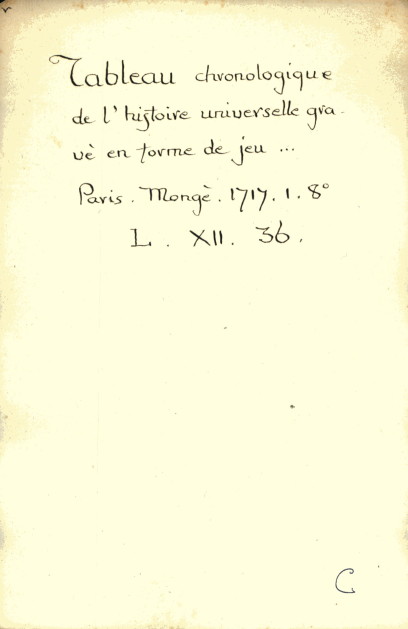 Tableau chronologique
de l'histoire universelle gra-
vè en forme de jeu ...
Paris. Mongè. 1717. 1. 8°
L. XII. 36.
C